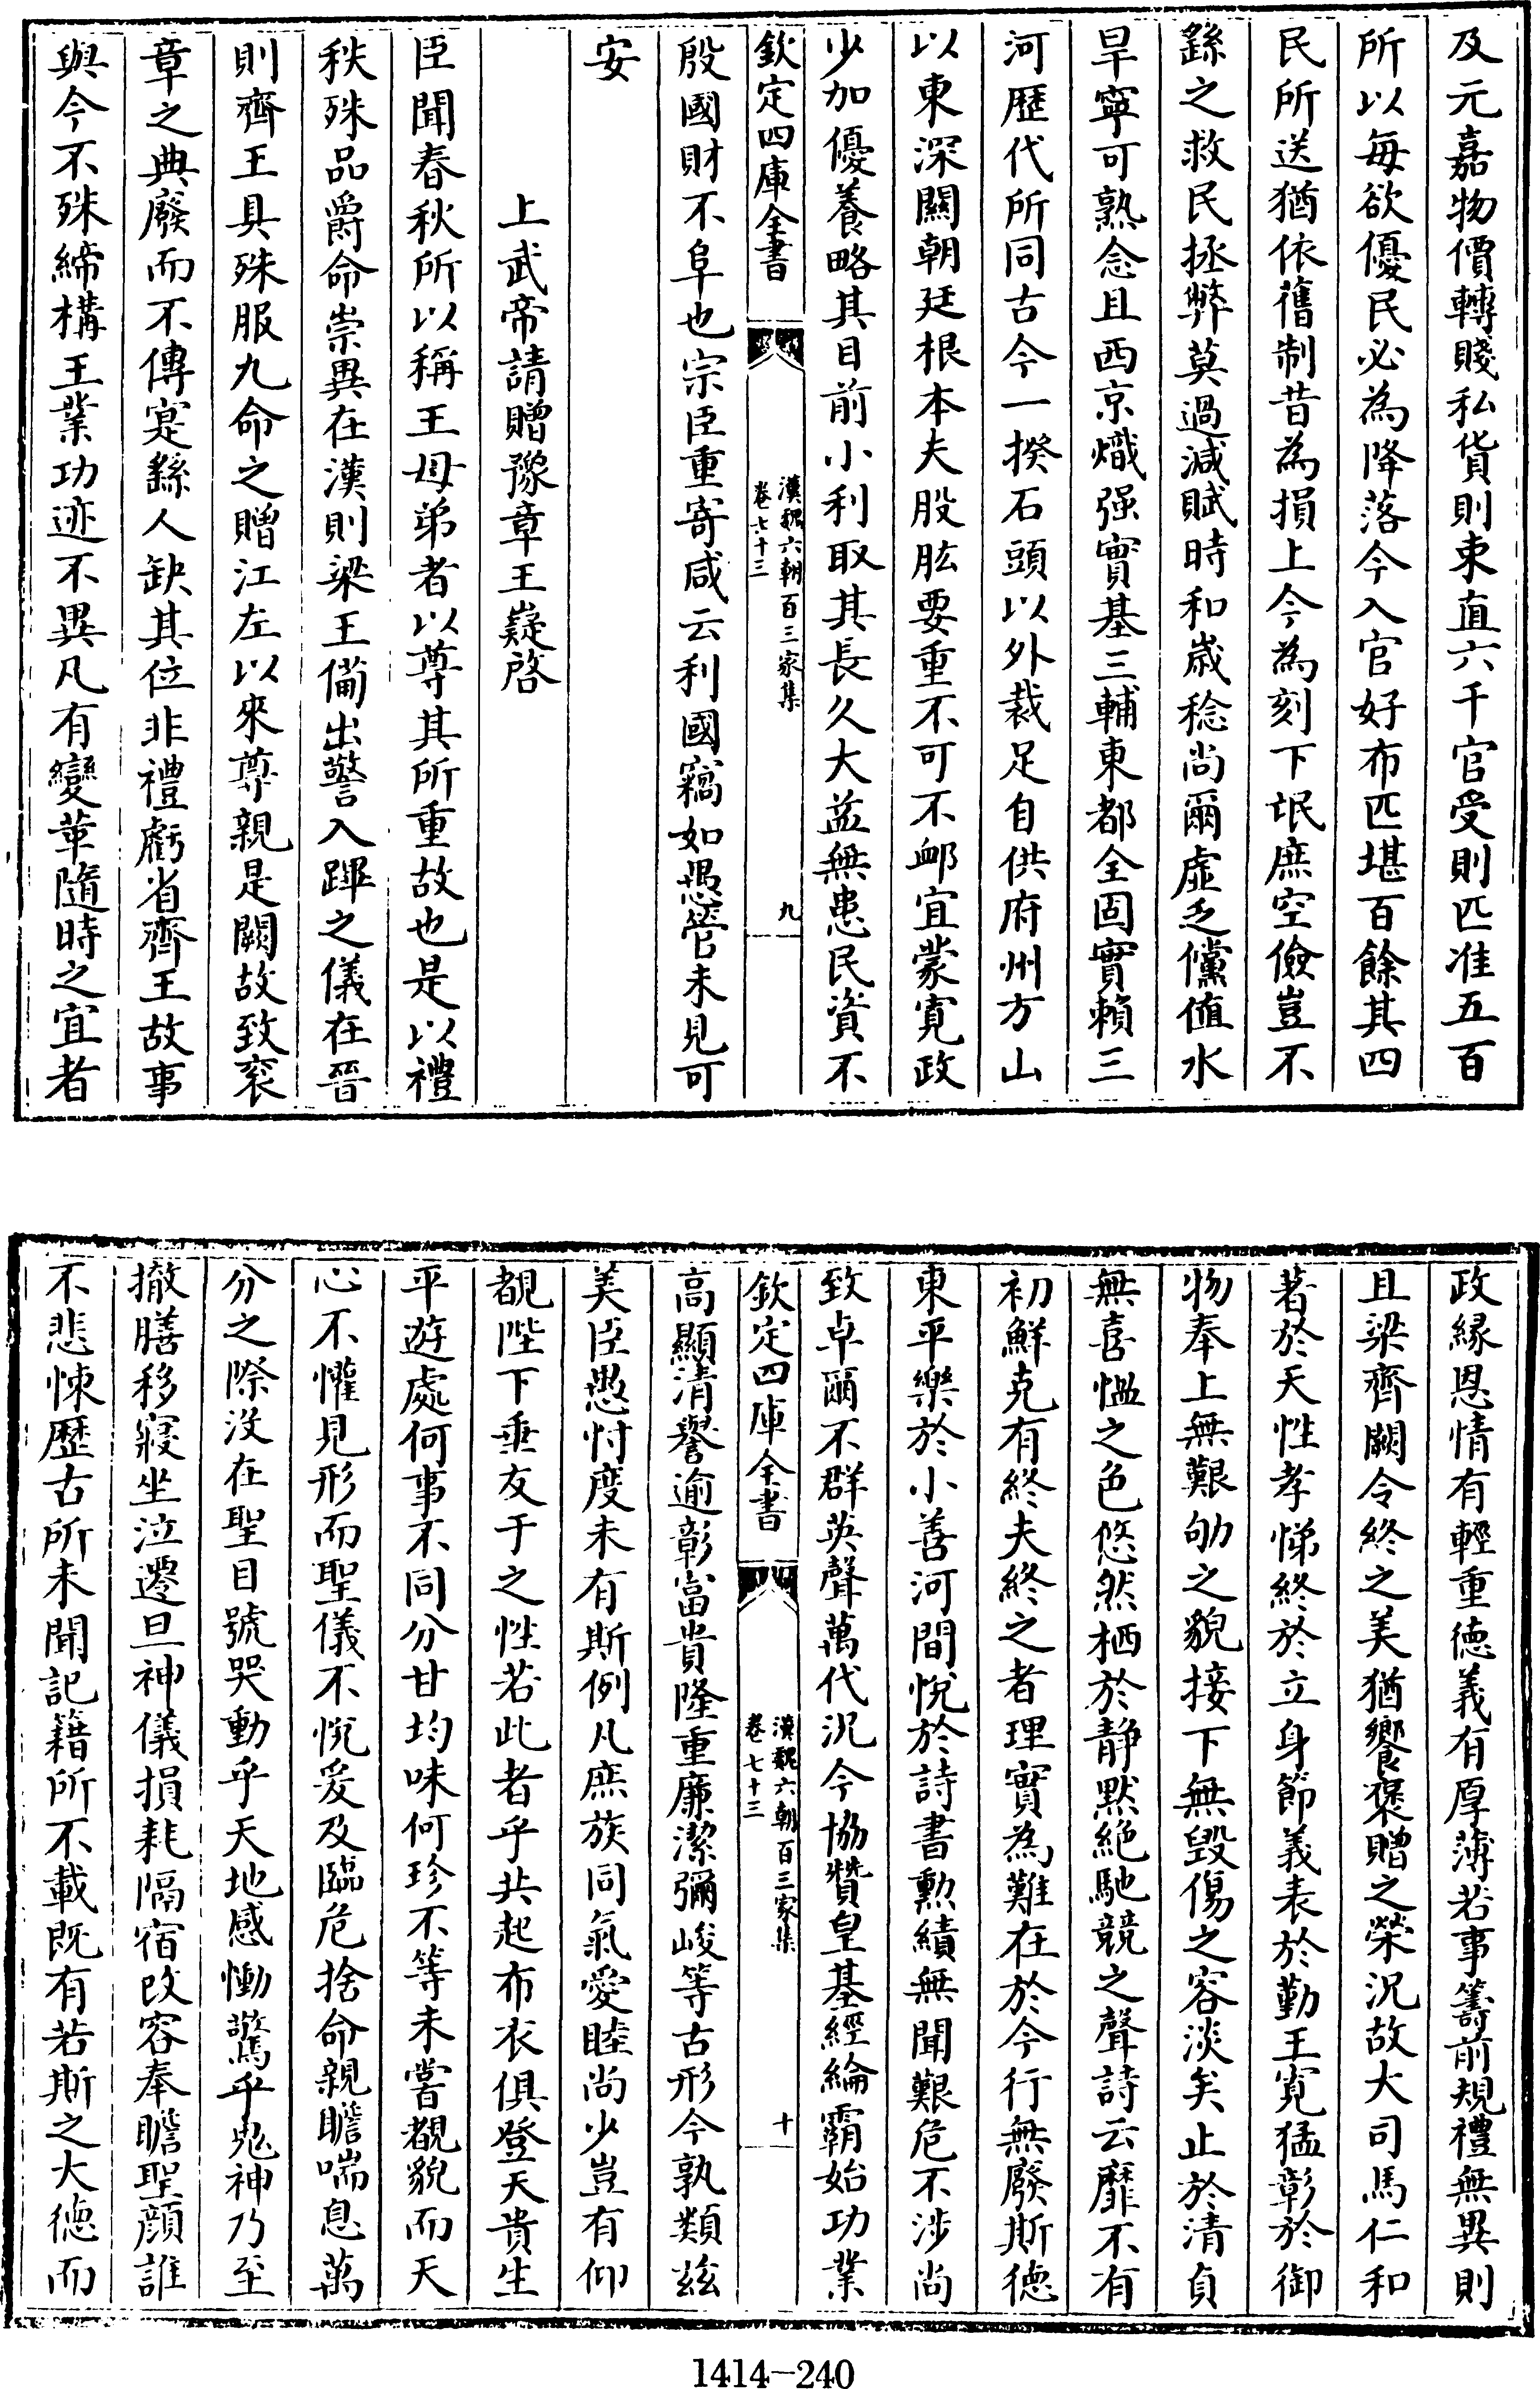 及元嘉物價轉賤私貨則束直六千官受則匹准五百
所以每欲優民必為降落今入官好布匹堪百餘其四
民所送猶依舊制昔為損上今為刻下氓庶空儉豈不
繇之救民拯弊莫過減賦時和歲稔尚爾虛乏儻值水
旱寧可熟念且西京熾强實基三輔東都全固實賴三
河歷代所同古今一揆石頭以外裁足自供府州方山
以東深關朝廷根本夫股肱要重不可不卹宜蒙寛政
少加優養略其目前小利取其長久大益無患民資不
欽定四庫全書
漢魏六朝百三家集
卷七十三
九
殷國財不阜也宗臣重寄咸云利國竊如愚管未見可
安
上武帝請贈豫章王嶷啓
臣聞春秋所以稱王母弟者以尊其所重故也是以禮
秩殊品爵命崇異在漢則梁王備出警入蹕之儀在晉
則齊王具殊服九命之贈江左以來尊親是闕故致衮
章之典廢而不傳寔繇人缺其位非禮虧省齊王故事
與今不殊締構王業功迹不異凡有變革隨時之宜者
政緣恩情有輕重德義有厚薄若事籌前規禮無異則
且梁齊闕令終之美猶饗褒贈之榮況故大司馬仁和
著於天性孝悌終於立身節義表於勤王寛猛彰於御
物奉上無艱劬之貌接下無毀傷之容淡矣止於清貞
無喜慍之色悠然栖於靜默絶馳競之聲詩云靡不有
初鮮克有終夫終之者理實為難在於今行無廢斯德
東平樂於小善河間悅於詩書勲績無聞艱危不涉尚
致卓爾不群英聲萬代況今協贊皇基經綸霸始功業
欽定四庫全書
漢魏六朝百三家集
卷七十三
十
高顯清譽逾彰富貴隆重廉潔彌峻等古形今孰類兹
美臣愚忖度未有斯例凡庶族同氣愛睦尚少豈有仰
覩陛下垂友于之性若此者乎共起布衣俱登天貴生
平遊處何事不同分甘均味何珍不等未嘗覩貌而天
心不懽見形而聖儀不悅爰及臨危捨命親瞻喘息萬
分之際没在聖目號哭動乎天地感慟驚乎鬼神乃至
撤膳移寢坐泣遷旦神儀損耗隔宿改容奉瞻聖顔誰
不悲悚歷古所未聞記籍所不載既有若斯之大德而
1414-240